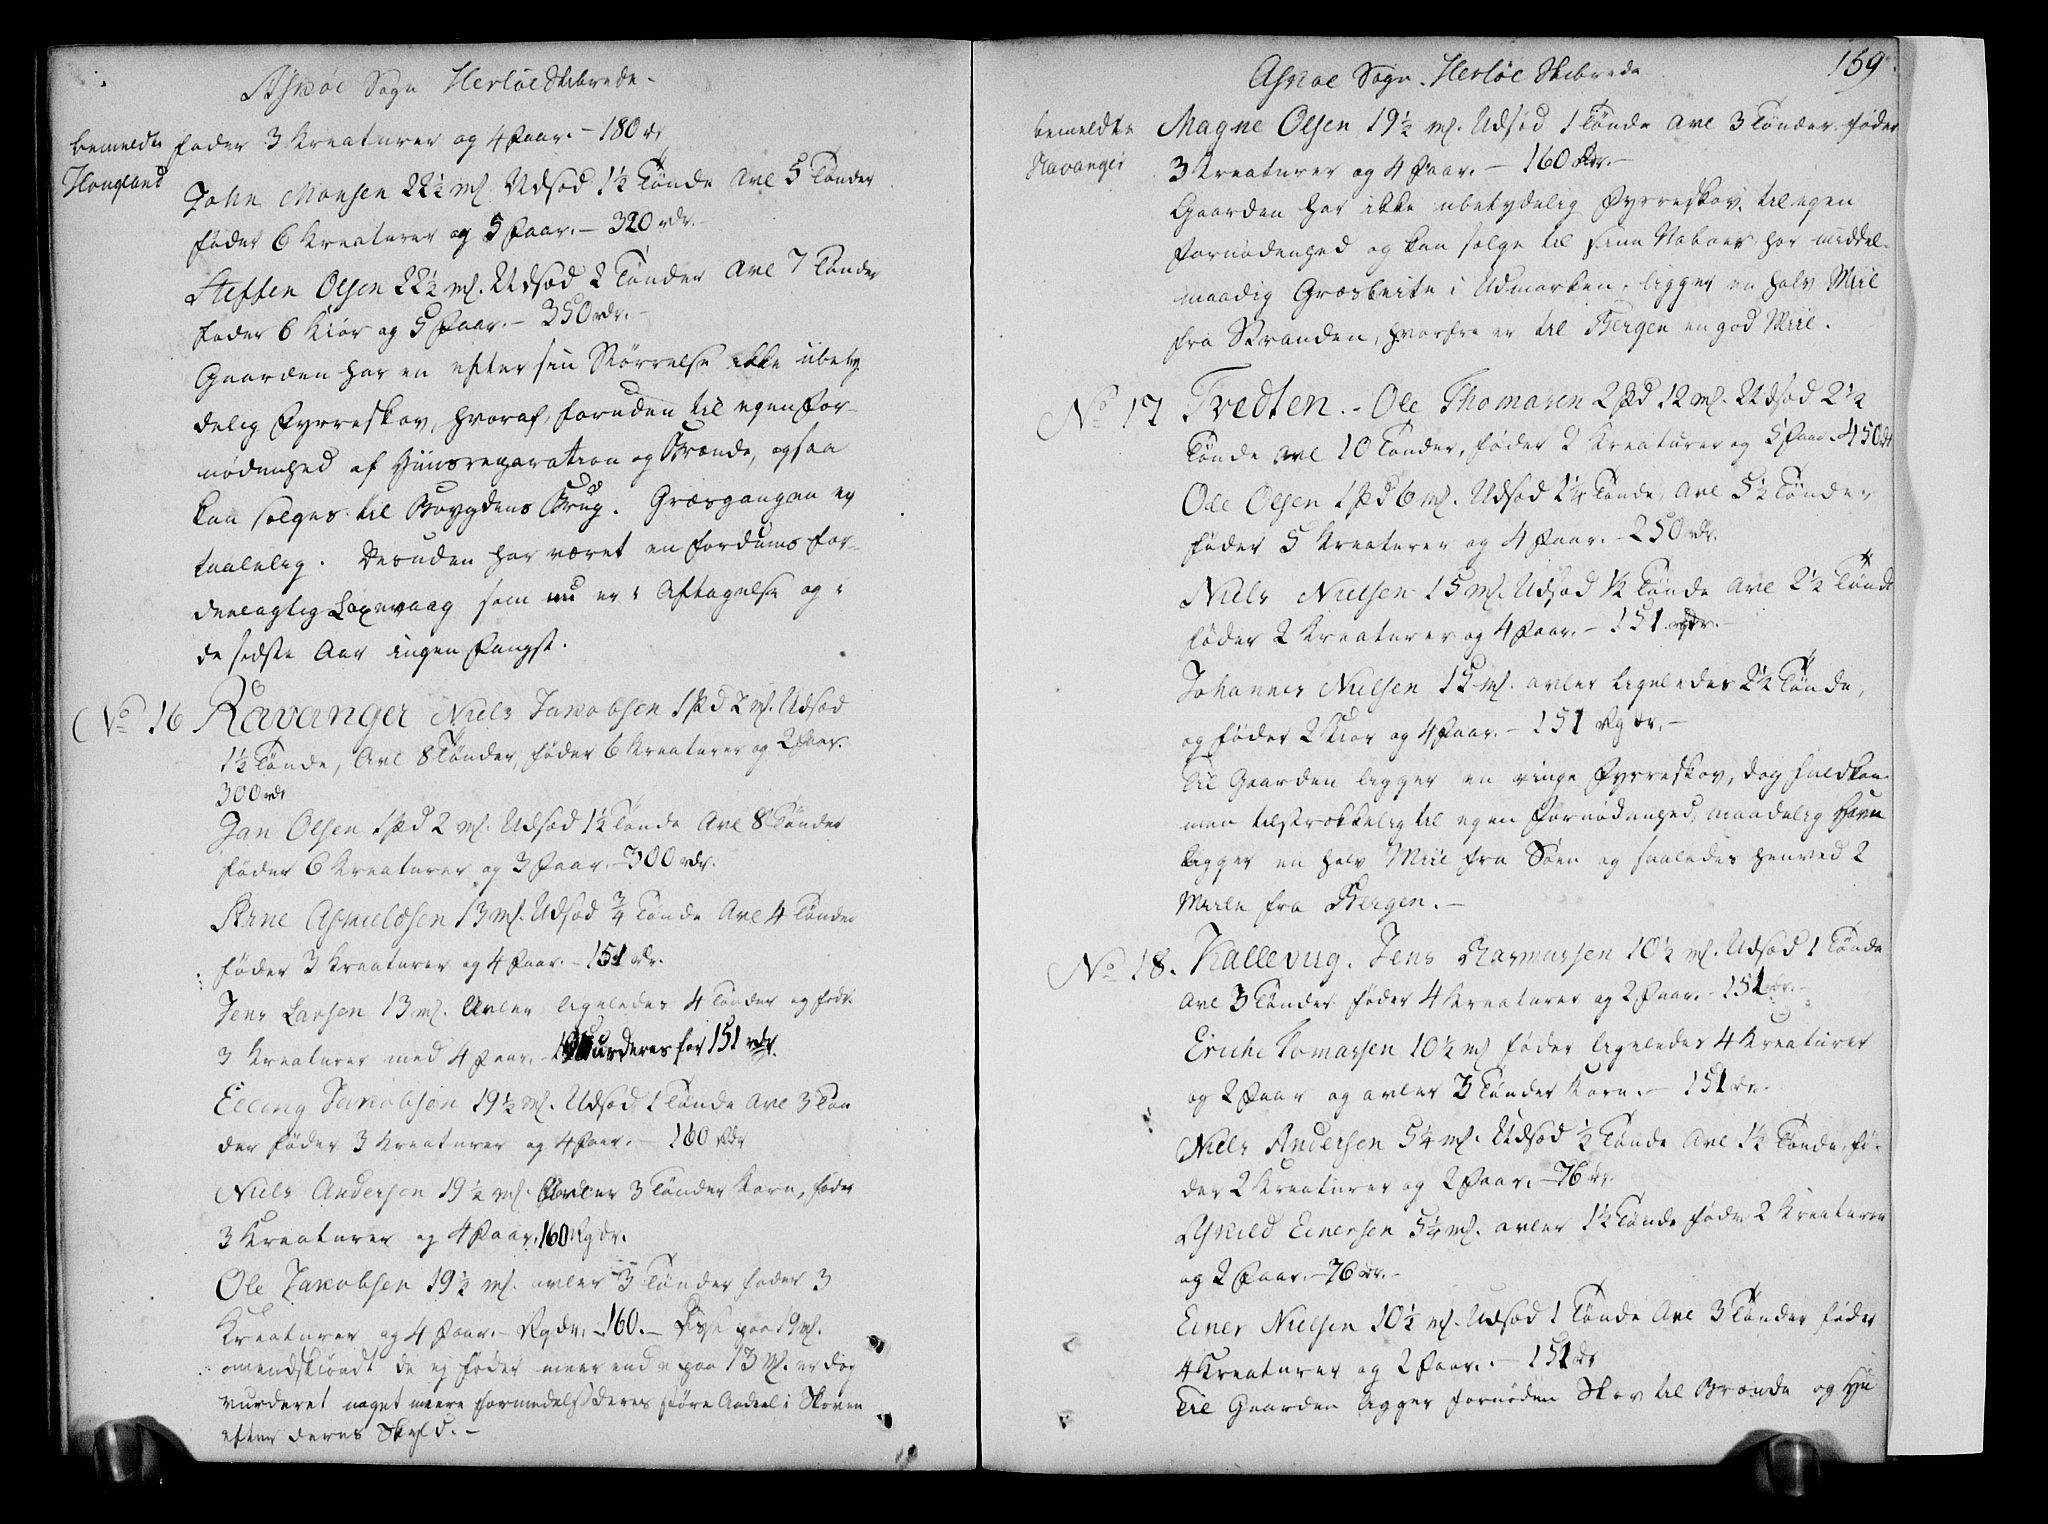 Askøe Sogn Herløe Skibrede.
bemeldte
Hougland
føder 3 Kreaturer og 4 Faar. – 180 rdr
John Monsen 22½ mf. Udsød 1½ Tønde Avl 5 Tønder
føder 6 Kreaturer og 5 Faar. – 320 rdr. –
Steffen Olsen 22½ mf. Udsød 2 Tønder Avl 7 Tønder
føder 6 Kiør og 5 Faar. – 350 rdr. –
Gaarden har en efter sin Størrelse ikke ubety
delig Fyrreskov, hvoraf, foruden til egen for-
nødenhed af Huusreparation og Brænde, ogsaa
kan sælges til Bøygdens Brug. Græsgangen er
taalelig. Desuden har været en fordums for-
deelagtig Laxevaag som nu er i Aftagelse og i
de sidste Aar ingen Fangst.
No 16 Råvanger Niels Jakobsen 1 pd 2 mf. Udsød
1½ Tønde, Avl 8 Tønder, føder 6 Kreaturer og 2 Faar.
300 rdr
Jan Olsen 1 pd 2 mf. Udsød 1½ Tønde Avl 8 Tønder
føder 6 Kreaturer og 3 Faar. – 300 rdr.
Arne Asmildsen 13 mf. Udsød ¾ Tønde Avl 4 Tønder
føder 3 Kreaturer og 4 Faar. – 151 rdr.
Jens Larsen 13 mf. Avler ligeledes 4 Tønder og føder
3 Kreaturer med 4 Faar. – vurderes for 151 rdr.
Elling Jakobsen 19½ mf. Udsød 1 Tønde Avl 3 Tøn
der føder 3 Kreaturer og 4 Faar. – 160 Rdr
Niels Andersen 19½ mf. Avler 3 Tønder Korn, føder
3 Kreaturer og 4 Faar. 160 Rgdr.
Ole Jakobsen 19½ mf. avler 3 Tønder føder 3
Kreaturer og 4 Faar. – Rgdr. 160. – Disse paa 19 mf.
omendskiøndt de ej føder meer end e paa 13 mf. er dog
vurderet noget meere formedelst deres støre Andeel i Skoven
efter deres Skyld. –
Askøe Sogn. Herløe Skibrede
159.
bemeldte
Ravanger
Magne Olsen 19½ mf. Udsød 1 Tønde Avl 3 Tønder føder
3 Kreaturer og 4 Faar. – 160 Rdr. –
Gaarden har ikke ubetydelig Fyrreskov, til egen
Fornødenhed og kan sælge til sine Naboer, har middel-
maadig Græsbeite i Udmarken, ligger en halv Miil
fra Stranden, hvorfra er til Bergen en god Miil.
No 17 Tvedten. – Ole Thomasen 2 pd 12 mf. Udsød 2½
Tønde Avl 10 Tønder, føder 2 Kreaturer og 5 Faar. 450 rdr
Ole Olsen 1 pd 6 mf. Udsød 1¼ Tønde, Avl 5½ Tønder
føder 5 Kreaturer og 4 Faar. – 250 rdr.
Niels Nielsen 15 mf. Udsød ½ Tønde Avl 2½ Tønde
føder 2 Kreaturer og 4 Faar. – 151 rdr. –
Johannes Nielsen 15 mf. avler ligeledes 2½ Tønde,
og føder 2 Kiør og 4 Faar. – 151 Rgdr. –
Til Gaarden ligger en ringe Fyrreskov, dog fuldkom-
men tilstrækkelig til egen Fornødenhed, maadelig Havn
ligger en halv Miil fra Søen og saaledes henved 2
Miile fra Bergen. –
No 18. Kallevig. Jens Rasmussen 10½ mf. Udsød 1 Tønde
Avl 3 Tønder føder 4 Kreaturer og 2 Faar. – 151 rdr. –
Eriche Tomassen 10½ mf føder ligeledes 4 Kreaturer
og 2 Faar og avler 3 Tønder Korn. – 151 dr.
Niels Andersen 5¼ mf. Udsød ½ Tønde Avl 1½ Tønde, fø-
der 2 Kreaturer og 2 Faar. – 76 dr.
Asmild Einersen 5¼ mf. avler 1½ Tønde føder 2 Kreaturer
og 2 Faar. – 76 dr. –
Einer Nielsen 10½ mf. Udsød 1 Tønde Avl 3 Tønder føder
4 Kreaturer og 2 Faar. – 151 dr
Til Gaarden ligger fornøden Skov til Brænde og Hu